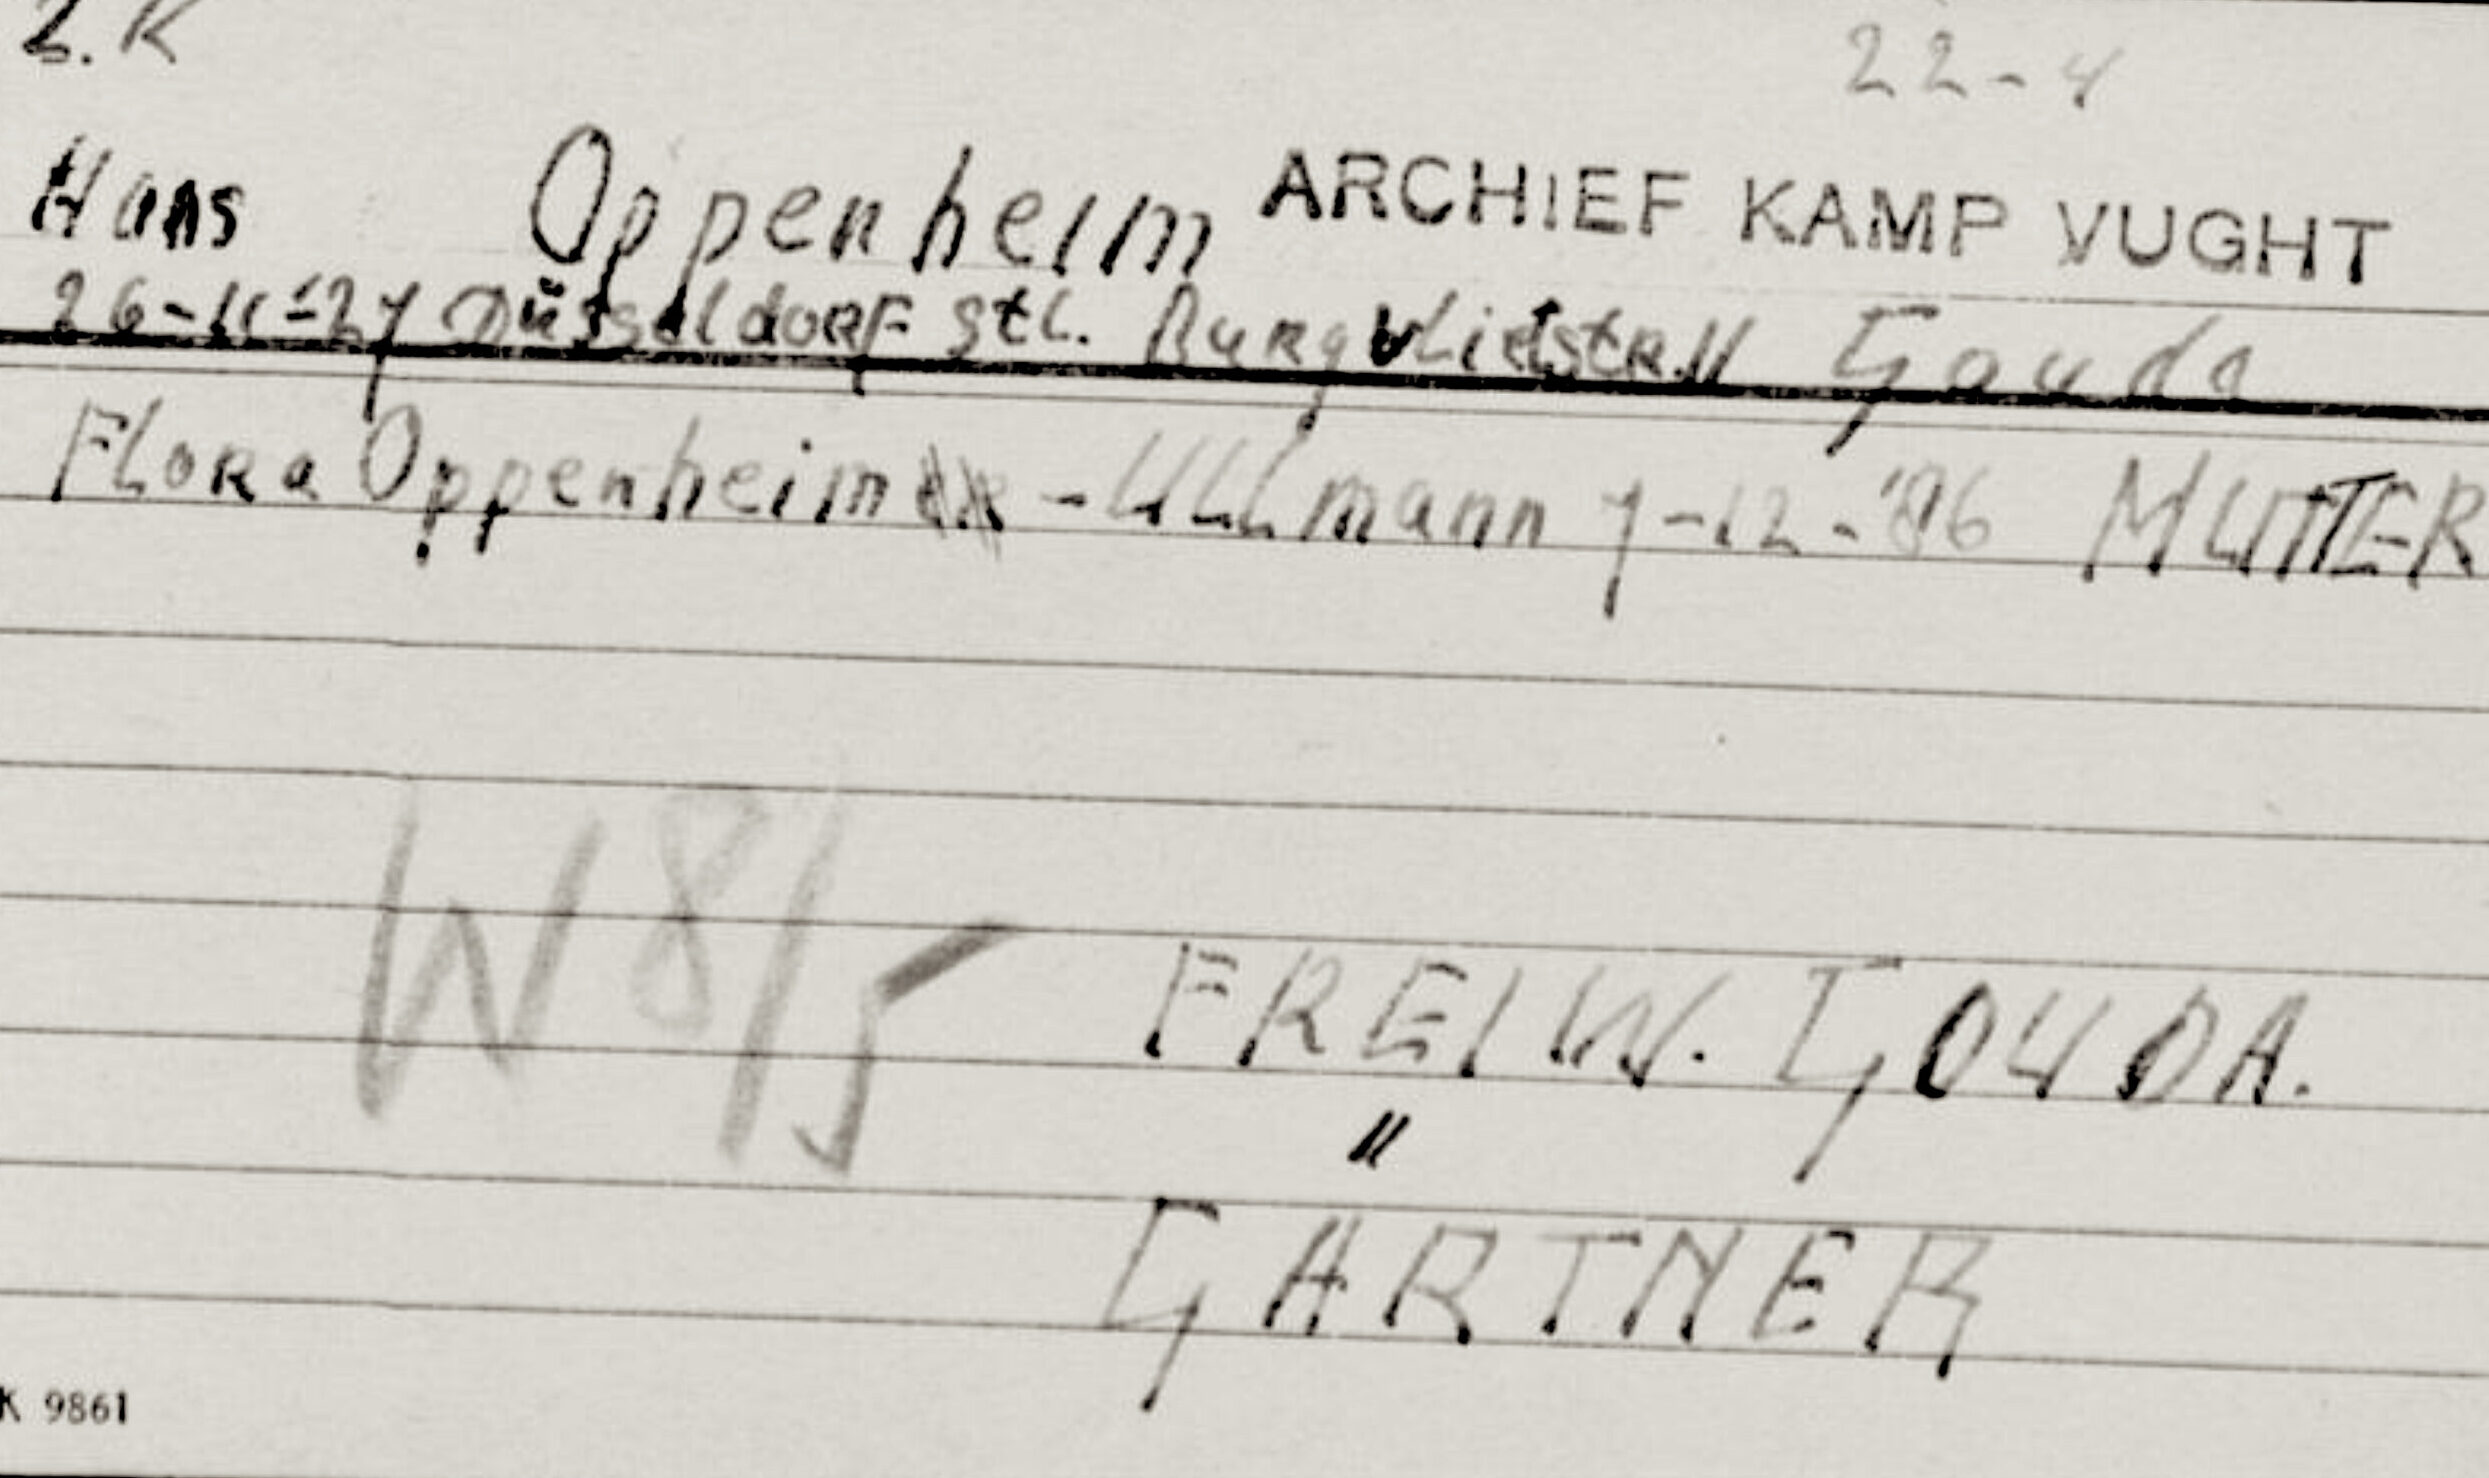 2.K 22-4
Hans Oppenheim ARCHIEF KAMP VUGHT
26-11-'27 Düsseldorf Stl. Burgvlietstr.11 Gouda
Flora Oppenheim - Ullmann 7-12-'86 MUTTER
W 8/5
FREIW. GOUDA.
"
GARTNER
K 9861